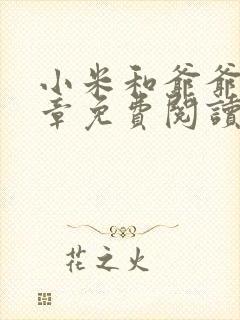 小米和爺爺
章免費閱讀
花之火